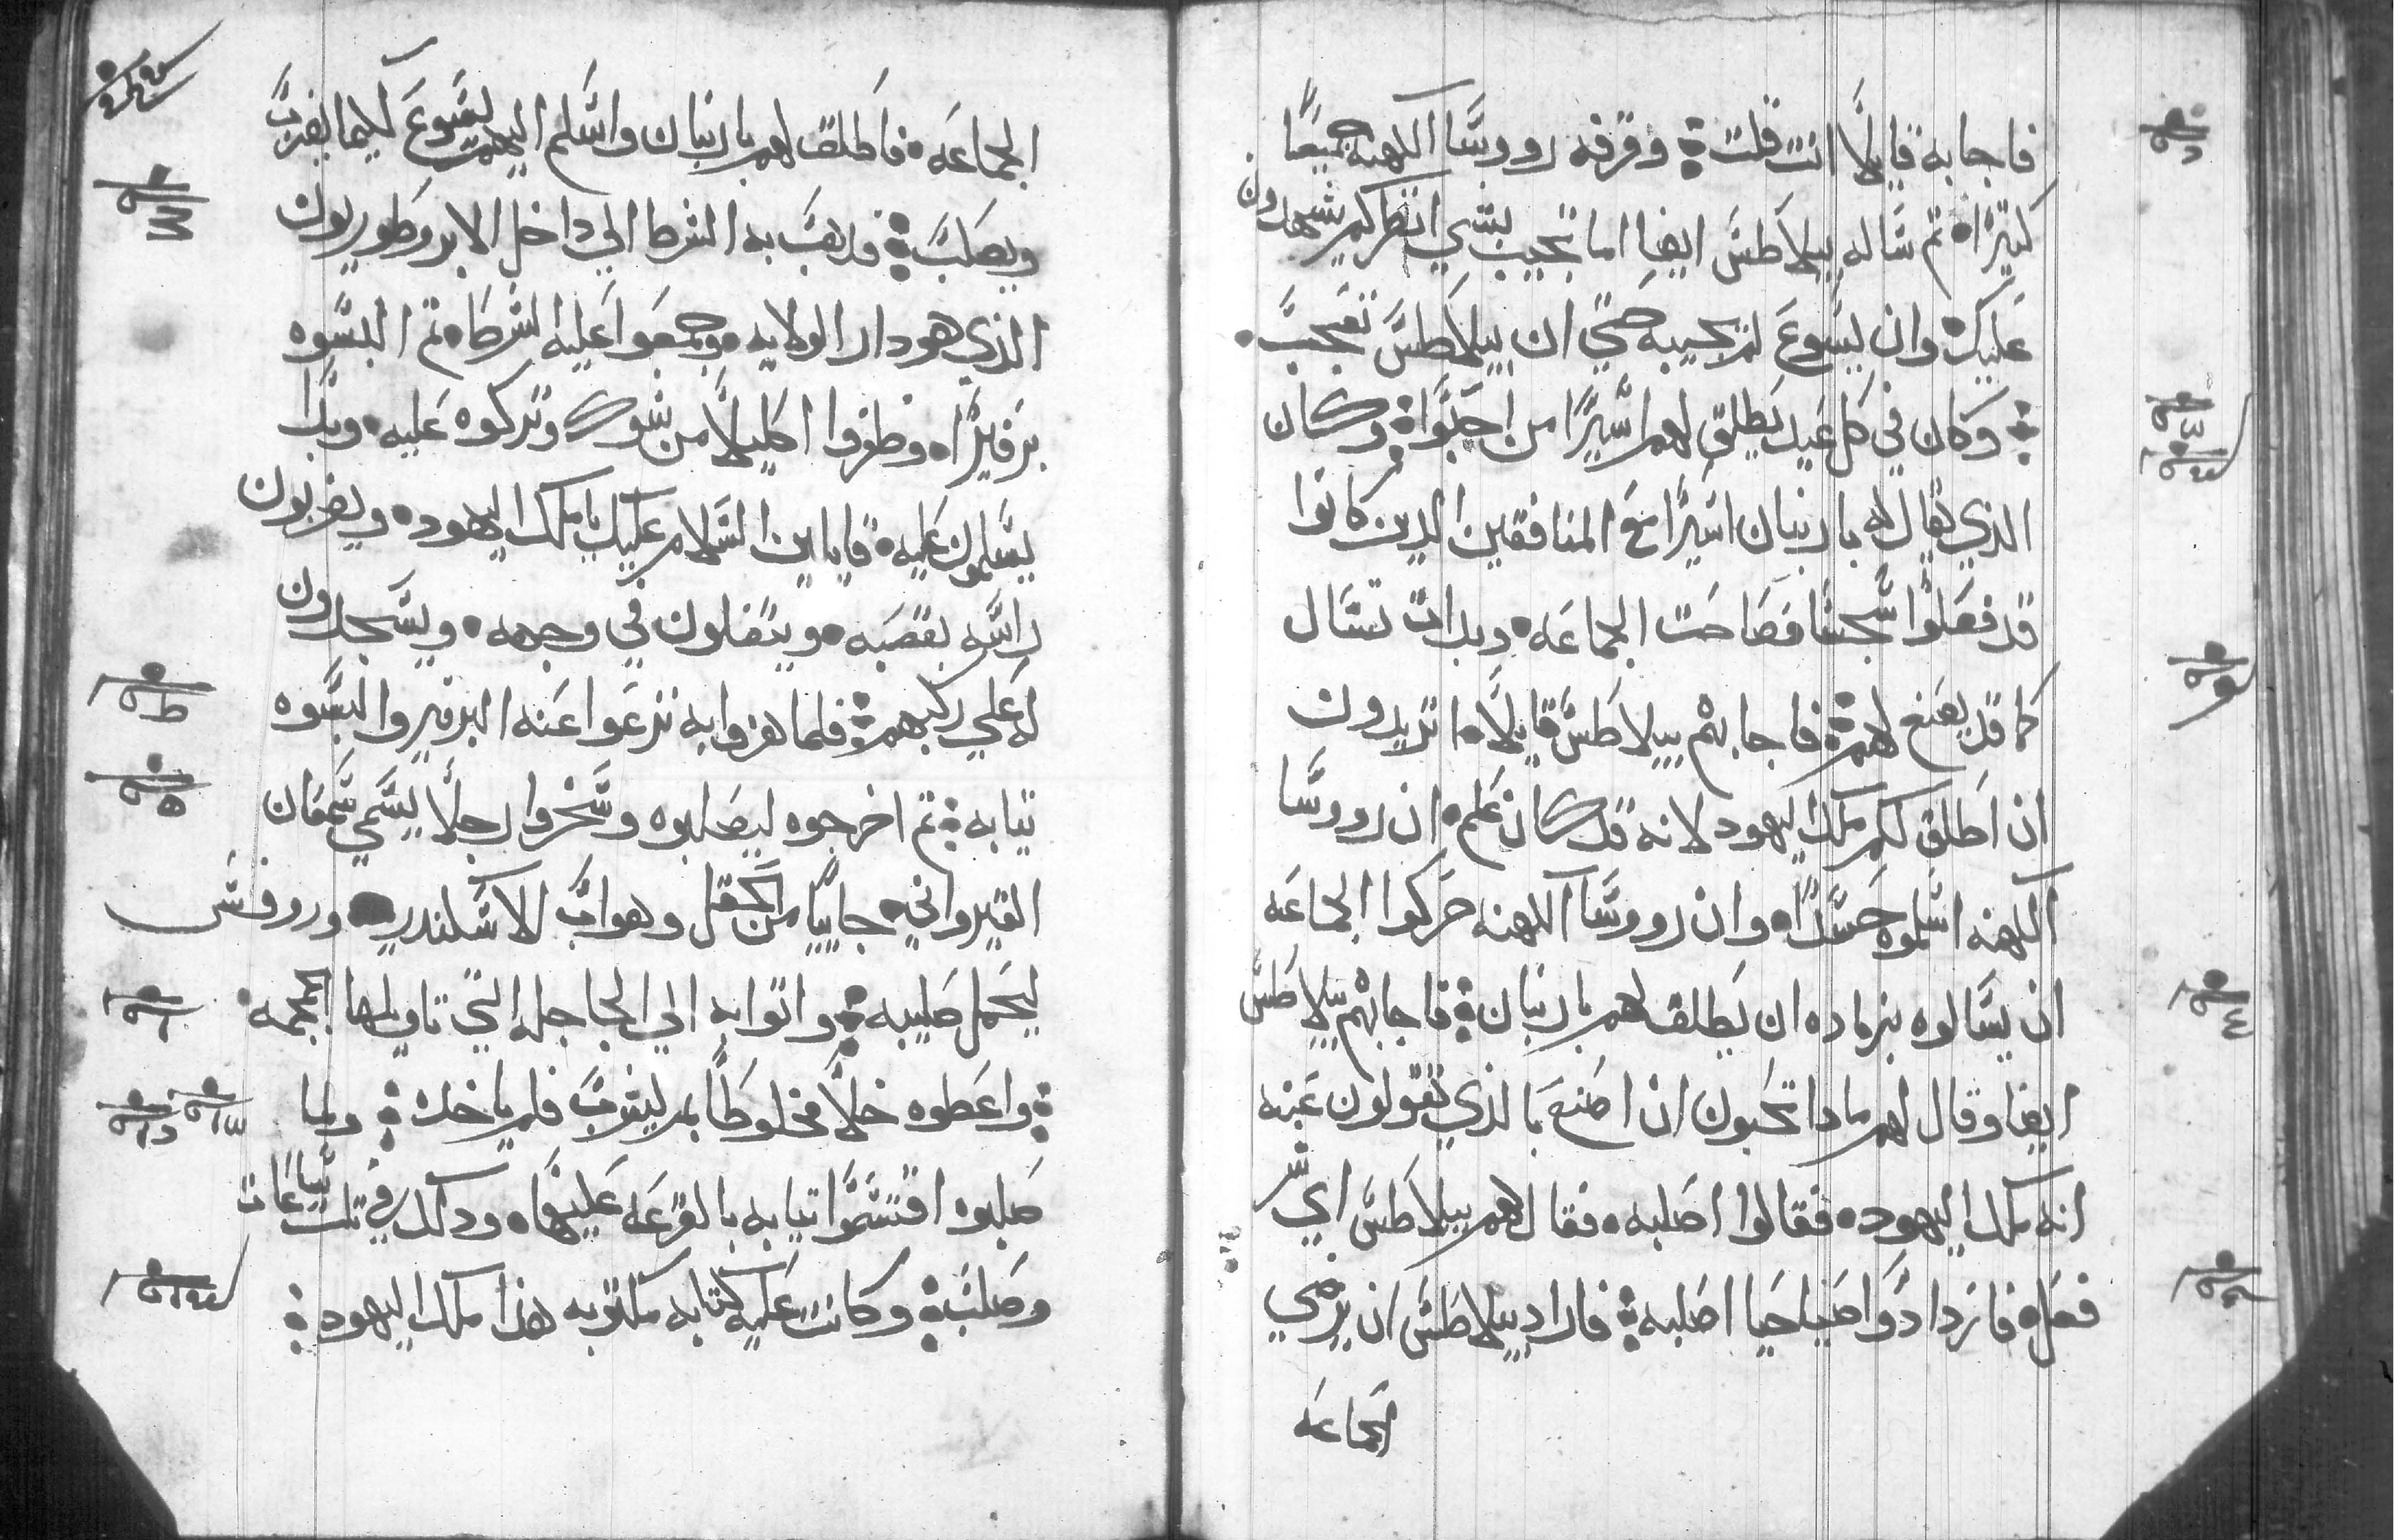 فاجابه قايلًا انت قلت ؞ وقرفه رووسا الكهنه جميعًا
كثيرًا ثم ساله بيلاطس ايضا اما تجيب بشي انظر كم يشهدون
عليك وان يسوع لم يجيبه حتي ان بيلاطس تعجب
؞ وكان في كل عيد يطلق لهم اسيرًا من احبوا ؞ وكان
الذي يقال له باربنان اسيرًا مع المنافقين الدين كانوا
قد فعلوا سجسا فصاحت الجماعه وبدات تسال
كما قد يصنع لهم ؞ فاجابهم بيلاطس قايلًا اتريدون
ان اطلق لكم ملك اليهود لانه قد كان علم ان رووسا
الكهنه اسلموه حسدًا وان رووسا الكهنه حركوا الجماعه
ان يسالوه بزياده ان يطلق لهم باربنان ؞ فاجابهم بيلاطس
ايضا وقال لهم مادا تحبون ان اصنع بالذي تقولون عنه
انه ملك اليهود فقالوا اصلبه فقال لهم بيلاطس اي شر
فعل فازدادوا صياحيا اصلبه ؞ فاراد بيلاطس ان يرضي
الجماعه
الجماعه فاطلق لهم باربنان واسلم اليهم يسوع كيما يضرب
ويصلب ؞ فدهب به الشرط الي داخل الابروطوريون
الذي هو دار الولايه وجمعوا عليه الشرط ثم البسوه
برفيرًا وظفروا اكليلًا من شوك وتركوه عليه وبدا
يسلمون عليه قايلين السلام عليك يا ملك اليهود ويضربون
راسه بقصبه ويتفلون في وجهه ويسجدون
له علي ركبهم ؞ فلما هزوا به نزعوا عنه البرفير والبسوه
ثيابه ؞ ثم اخرجوه ليصلبوه وسخروا رجلًا يسمي سمعان
القيرواني جاييًا من الحقل وهو اب الاسكندر وروفس
ليحمل صليبه ؞ واتوا به الي الجاجله التي تاويلها الجمجمه
؞ واعطوه خلًا مخلوطًا بمر ليشرب فلم ياخد ؞ ولما
صلبوه اقتسموا ثيابه بالقرعه عليها ودلك في تلت ساعات
وصلب ؞ وكانت عليه كتابه مكتوبه هذا ملك اليهود ؞